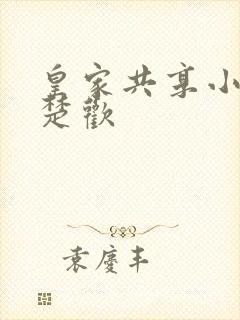 皇家共享小
楚歡
袁慶丰